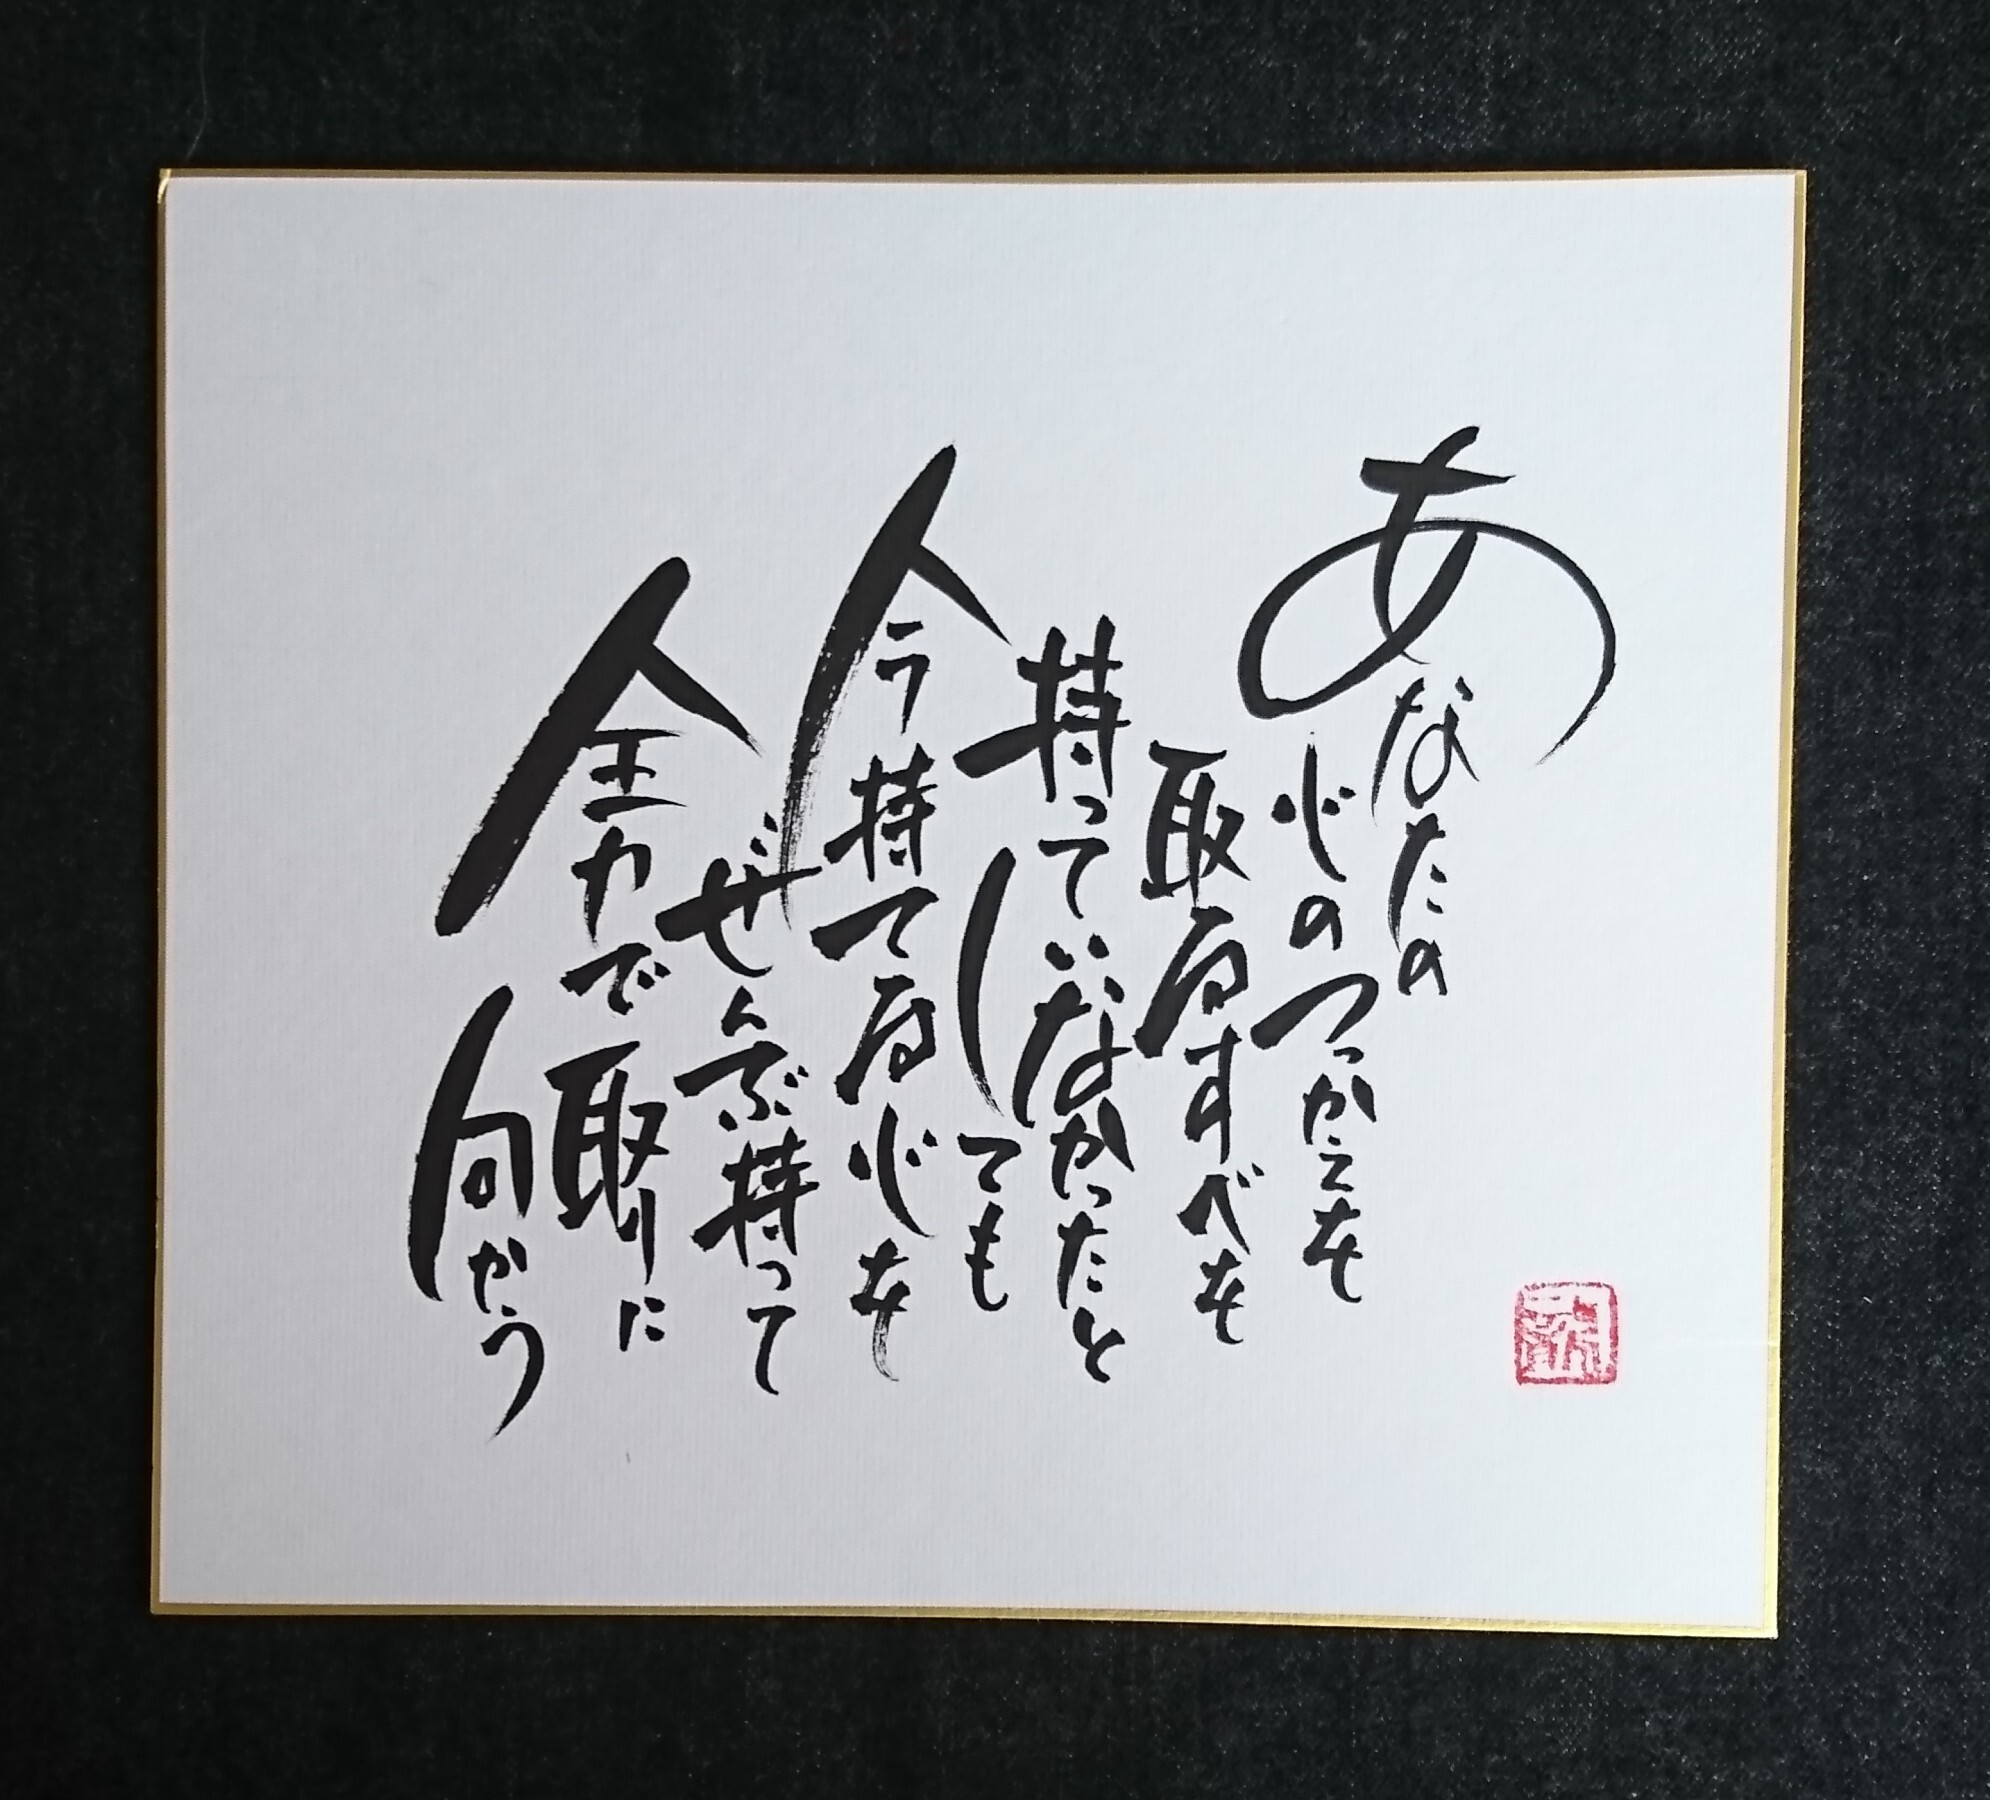 あなたの
心のつっかえを
取るすべを
持っていなかったと
しても
今持てる心を
ぜんぶ持って
全力で取りに
向かう